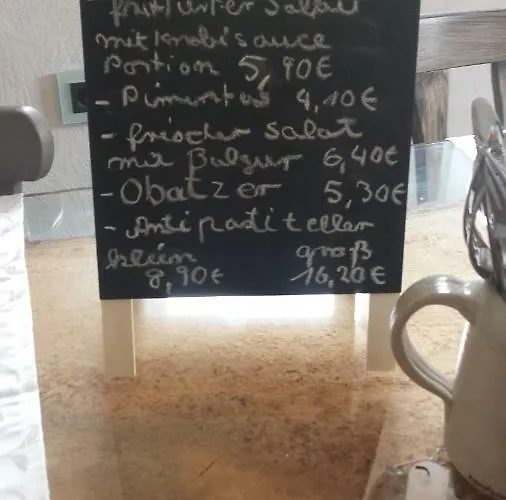 frankfurter Salami
mit Knobisauce
Portion 5,90€
- Pimentos 4,10€
- frischer Salat
mit Bulgur 6,40€
- Obatzer 5,30€
- Antipastiteller
klein groß
8,90€ 16,20€